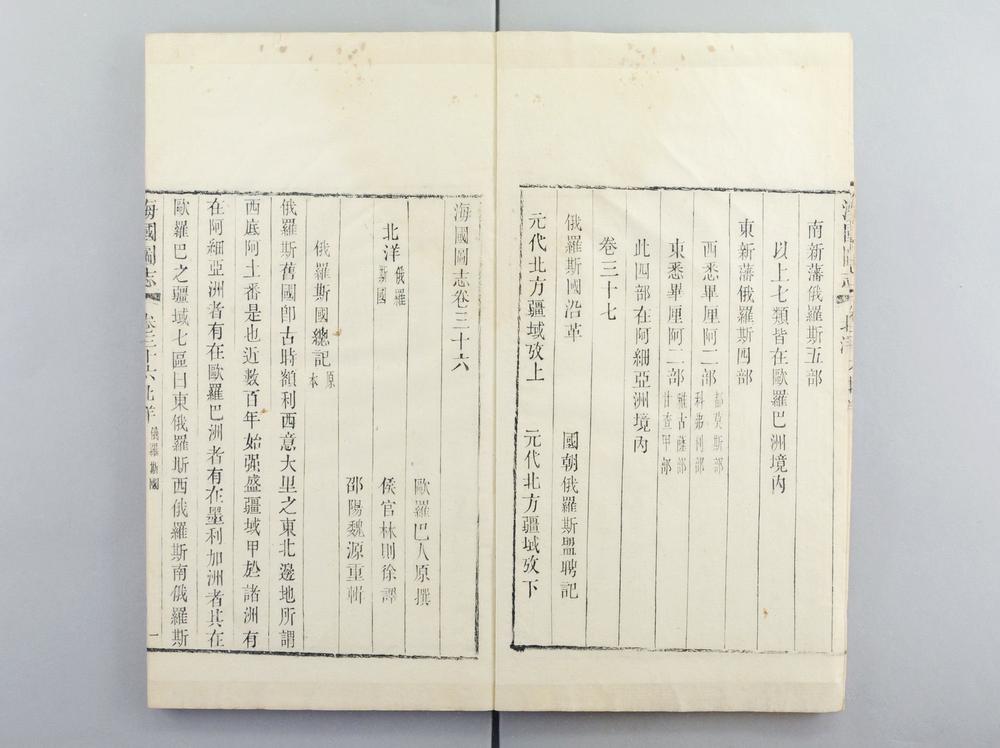 南新藩俄羅斯五部
以上七類皆在歐羅巴洲境內
東新藩俄羅斯四部
西悉畢厘阿二部 都莫斯部 科弗利部
東悉畢厘阿二部 雅古薩部 甘查甲部
此四部在阿細亞洲境內
卷三十七
俄羅斯國沿革 國朝俄羅斯盟聘記
元代北方疆域攷上 元代北方疆域攷下
海國圖志卷三十六
歐羅巴人原撰
北洋 俄羅斯國 侯官林則徐譯
邵陽魏源重輯
俄羅斯國總記 原本
俄羅斯舊國卽古時額利西意大里之東北邊地所謂
西底阿土番是也近數百年始强盛疆域甲於諸洲有
在阿細亞洲者有在歐羅巴洲者有在墨利加洲者其在
歐羅巴之疆域七區曰東俄羅斯西俄羅斯南俄羅斯
海國圖志 卷三十六北洋 俄羅斯國 一